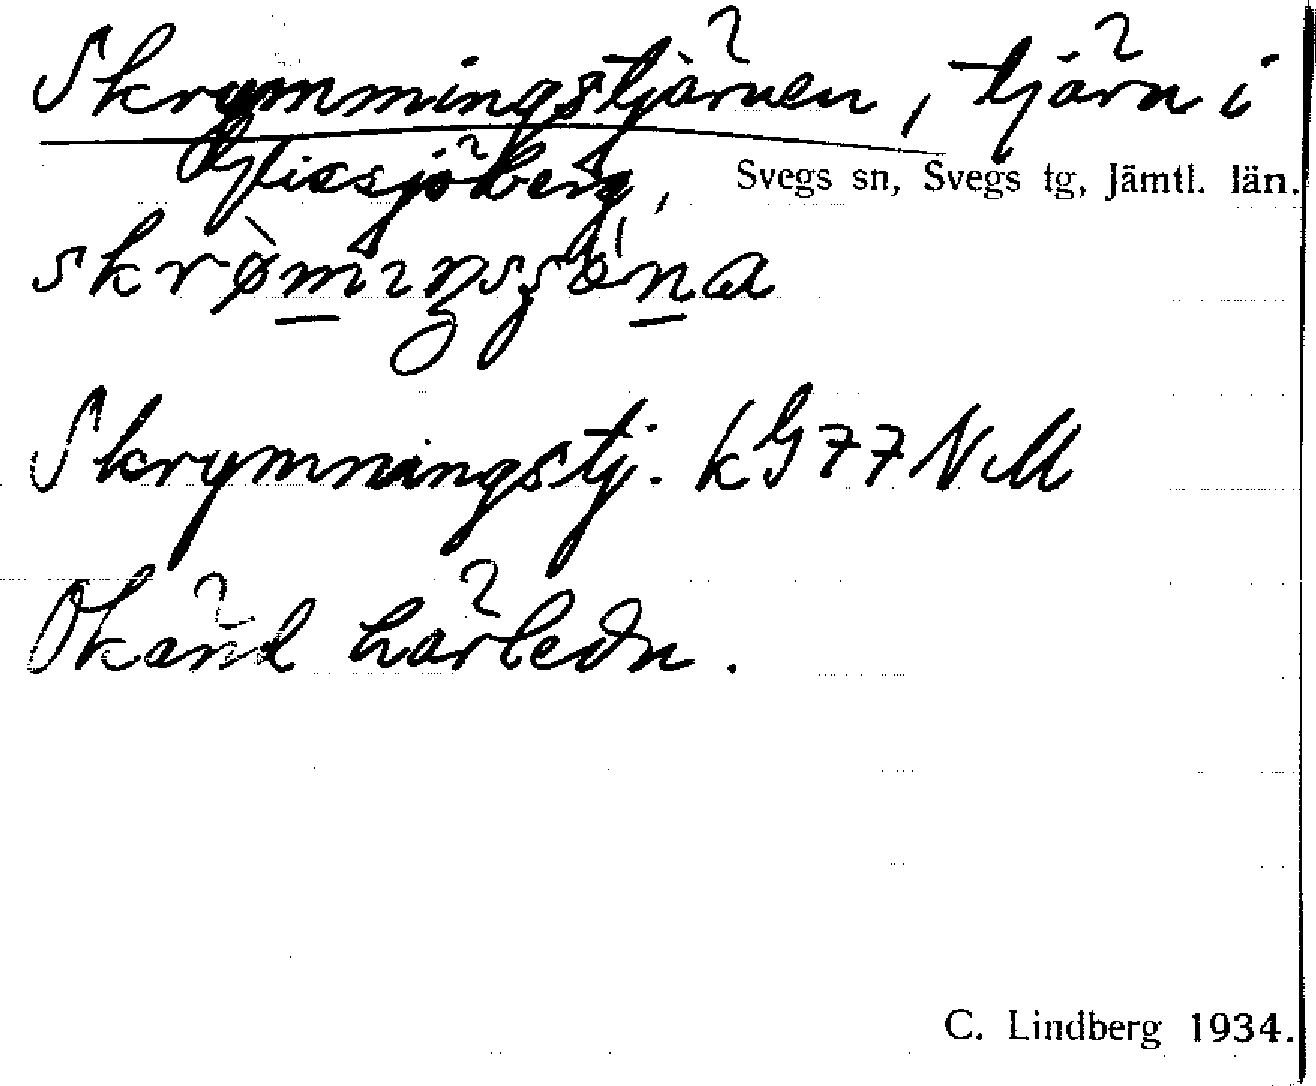 Skrymmingstjärnen, tjärn i
Glissjöberg, Svegs sn, Svegs tg, Jämtl. län.
Skrymningstj. kG 77 NM
Okänd härledn.
C. Lindberg 1934.